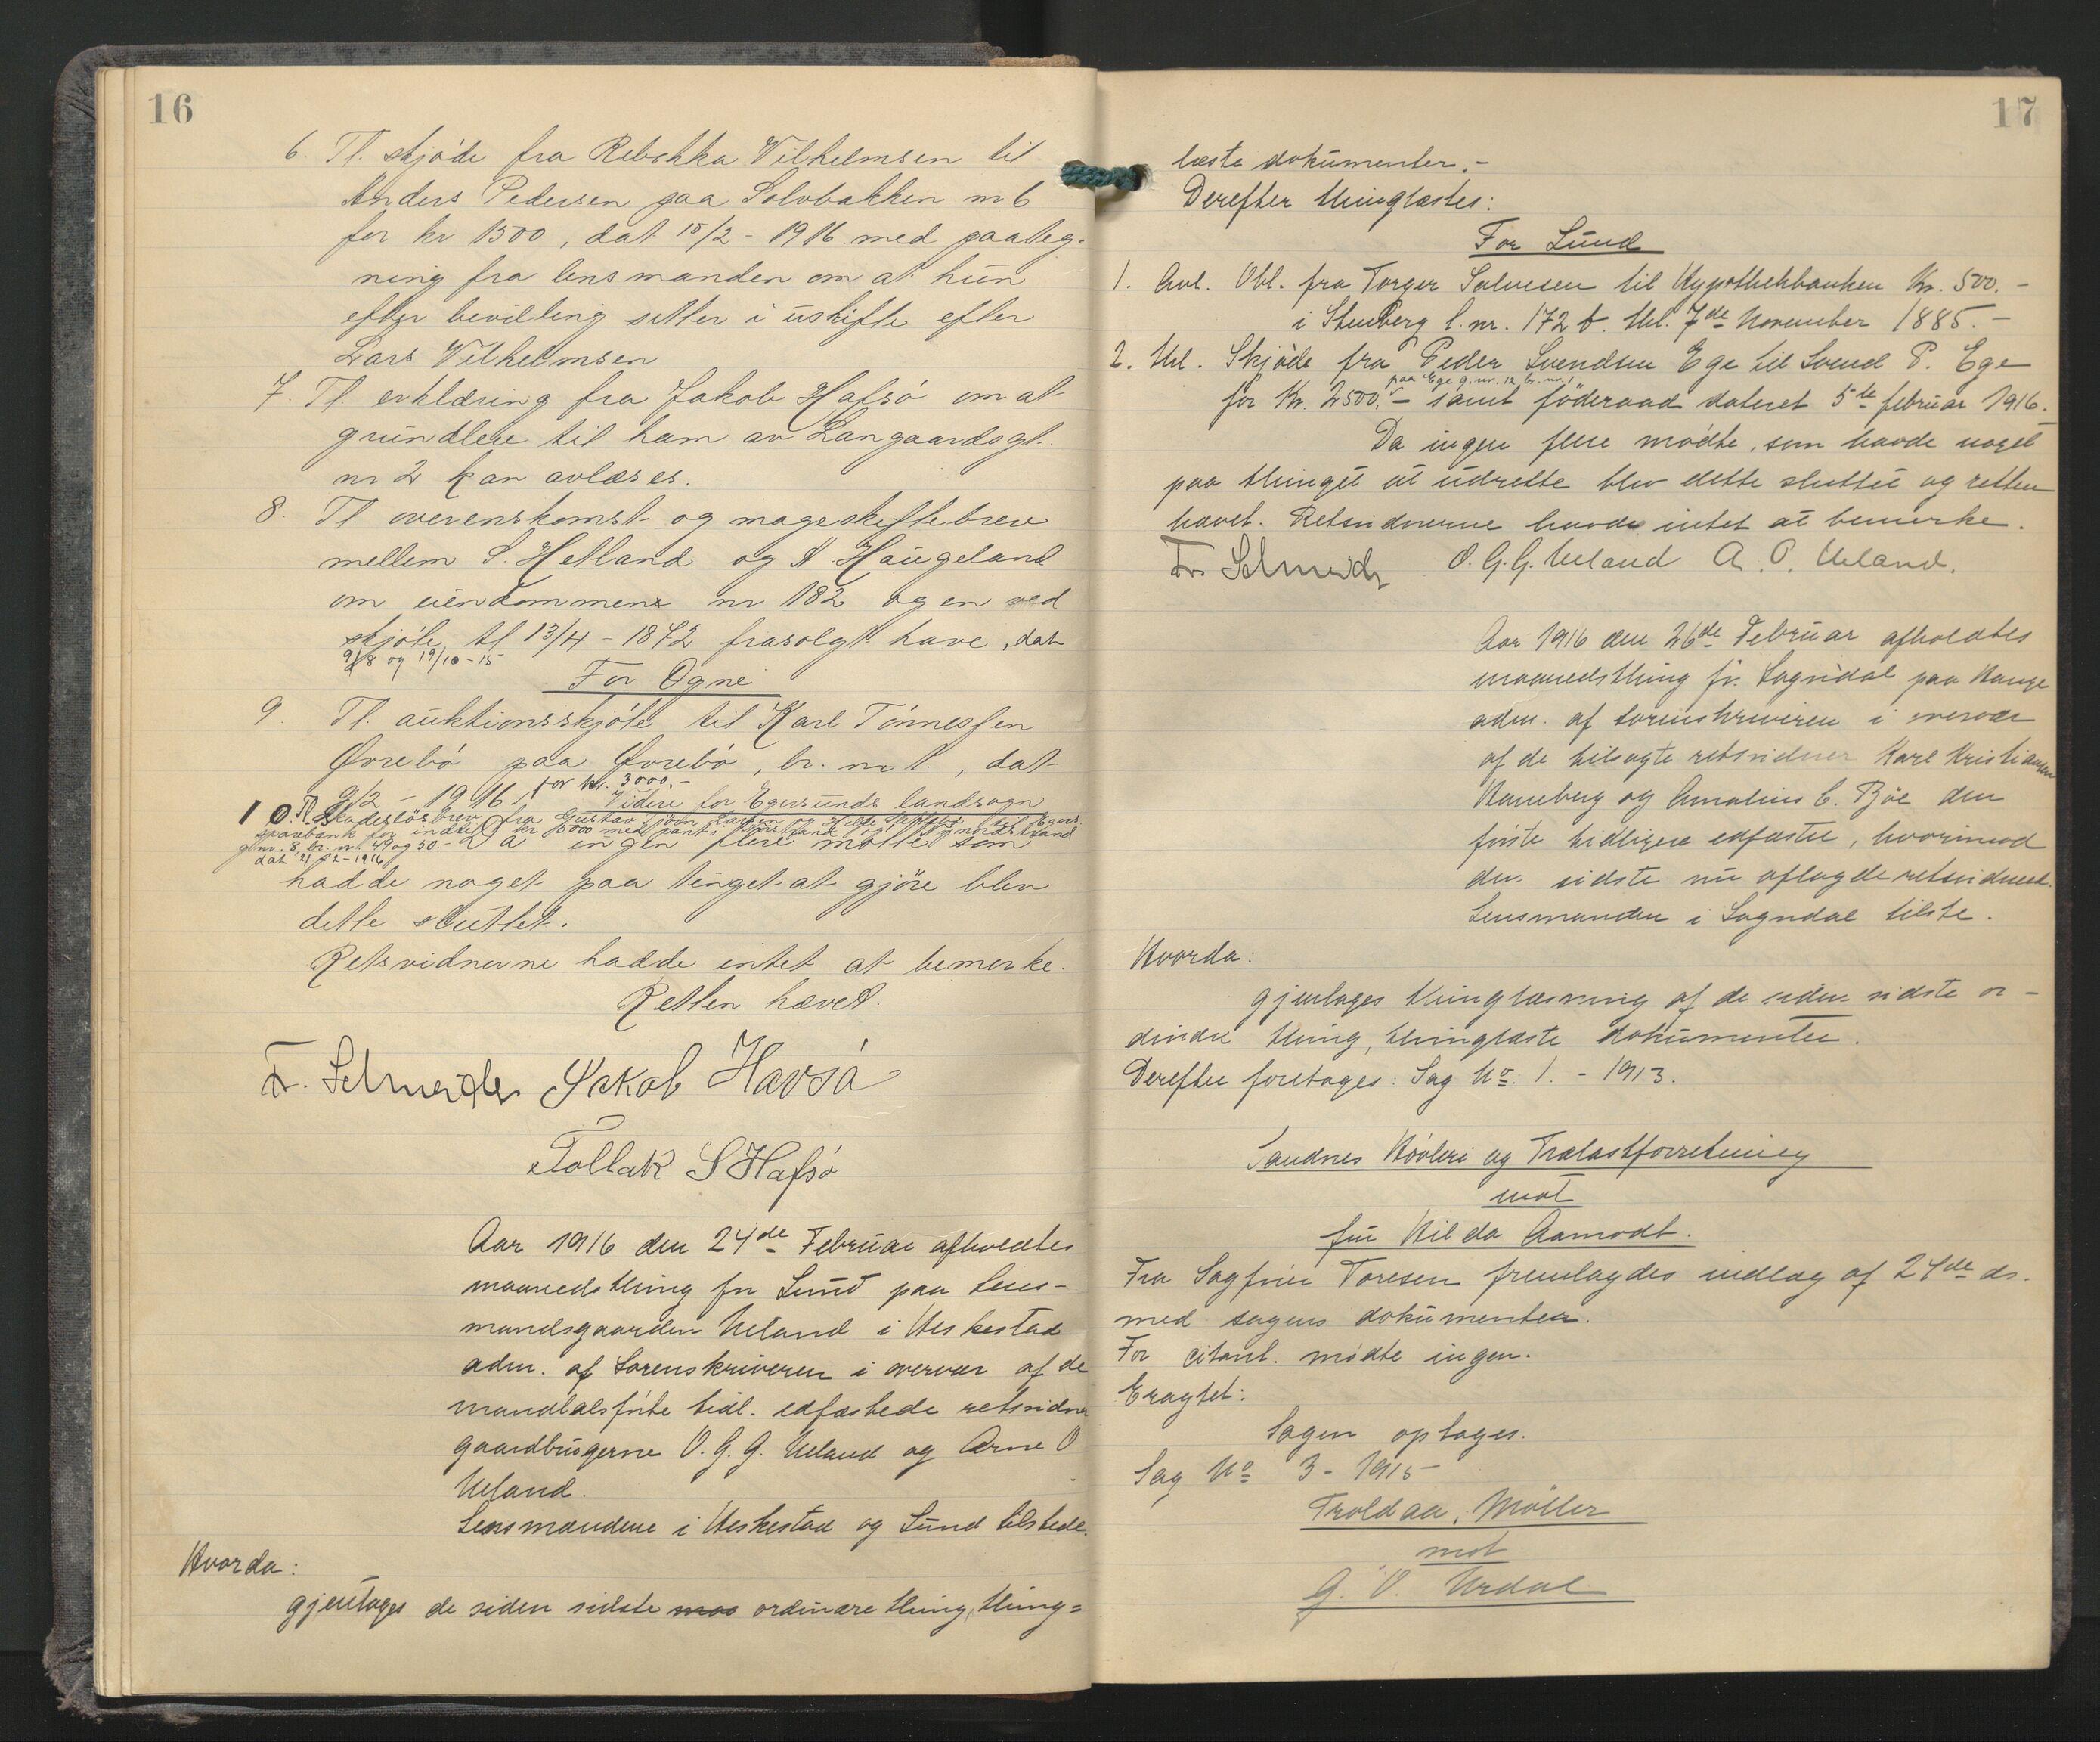 16
6. Tl. skjøde fra Rebekka Vilhelmsen til
Anders Pedersen paa Solvbakken nr 6
for kr 1500, dat 15/2 - 1916. med paateg-
ning fra lensmanden om at hun
efter bevilling sitter i uskifte efter
Lars Vilhelmsen
7. Tl. erklæring fra Jakob Hafsø om at
grundleie til ham av Langaardsgt.
nr 2 kan avlæses.
8. Tl. overenskomst og mageskiftebrev
mellem S. Hetland og A Haugeland
om eiendommene nr 182 og en ved
skjøte tl 13/4 - 1872 frasolgt have, dat
9/8 og 19/10 - 15
For Ogne
9. Tl. auktionsskjøte til Karl Tønnessen
Øvrebø paa Øvrebø, br. nr 1., dat
9/2 - 1916, for kr. 3000.-
Videre for Egersunds landsogn
10. Tl. Skadesløsbrev fra Gustav Larsen og til Egers.
sparebank for indtil kr 6000 med pant i og Nynordstrand
g.nr. 8, br. n. 49 og 50.- Da ingen flere møtte som
dat 21/2 - 1916
hadde noget paa tinget at gjøre blev
dette sluttet.
Retsvidnerne hadde intet at bemerke.
Retten hævet.
Fr. Schneider Jakob Havsø
Tollak S Hafsø
Aar 1916 den 24de Februar afholdtes
maanedsthing for Lund paa Lens-
mandsgaarden Ueland i Heskestad
adm. af Sorenskriveren i overvær af de
mandtalsførte tidl. edfæstede retsvidner
gaardbrugerne O. G. G. Ueland og Arne O
Ueland.
Lensmændene i Heskestad og Lund tilstede.
Hvorda:
gjentages de siden sidste maa ordinære thing, thing=
17
læste dokumenter.-
Derefter thinglæstes:
For Lund
1. Avl. Obl. fra Torger Salvesen til Hypothekbanken Kr. 500.-
i Stenberg l.nr. 172 b. thl. 7de November 1885.-
2. thl. Skjøde fra Peder Svendsen Ege til Svend P. Ege
paa Ege g.nr. 12, br.nr. 1
for Kr. 2500.- samt føderaad dateret 5te februar 1916.
Da ingen flere mødte, som havde noget
paa thinget at udrette blev dette sluttet og retten
hævet. Retsvidnerne havde intet at bemerke.
Fr. Schneider O. G. G. Ueland A. O. Ueland.
Aar 1916 den 26de Februar afholdtes
maanedsthing for Sogndal paa Hauge
adm. af sorenskriveren i overvær
af de tilsagte retsvidner Karl Kristiansen
Haneberg og Amalius C. Bøe den
første tidligere edfæstet, hvorimod
den sidste nu aflagde retsvidneed.
Lensmanden i Sogndal tilste.
Hvorda:
gjentages thinglæsning af de siden sidste or-
dinære thing, thinglæste dokumenter.
Derefter foretages: Sag No. 1. - 1913.
Sandnes Høvleri og Trælastforretning
mot
fru Hilda Aamodt.
Fra Sagfører Toresen fremlagdes indlæg af 24de ds.
med sagens dokumenter.
For citant. mødte ingen.
Eragtet:
Sagen optages.
Sag No 3 - 1915
Troldaa, Møller
mot
G. O. Urdal